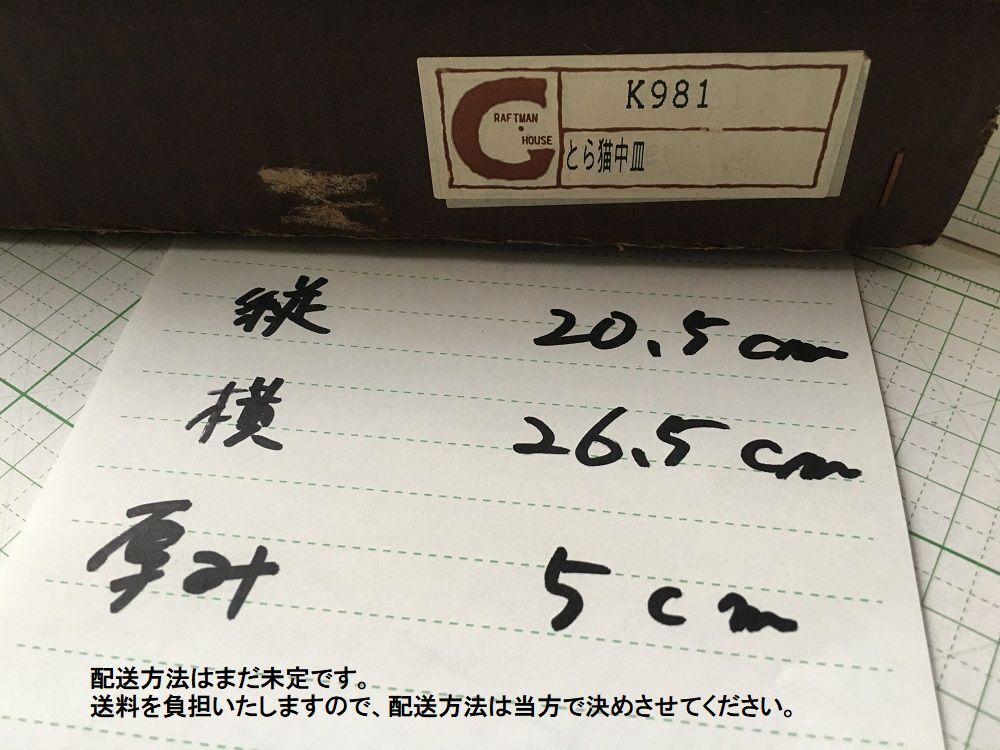 K981
CRAFTMAN
HOUSE
とら猫中皿
縦 20.5cm
横 26.5cm
厚み 5cm
配送方法はまだ未定です。
送料を負担いたしますので、配送方法は当方で決めさせてください。